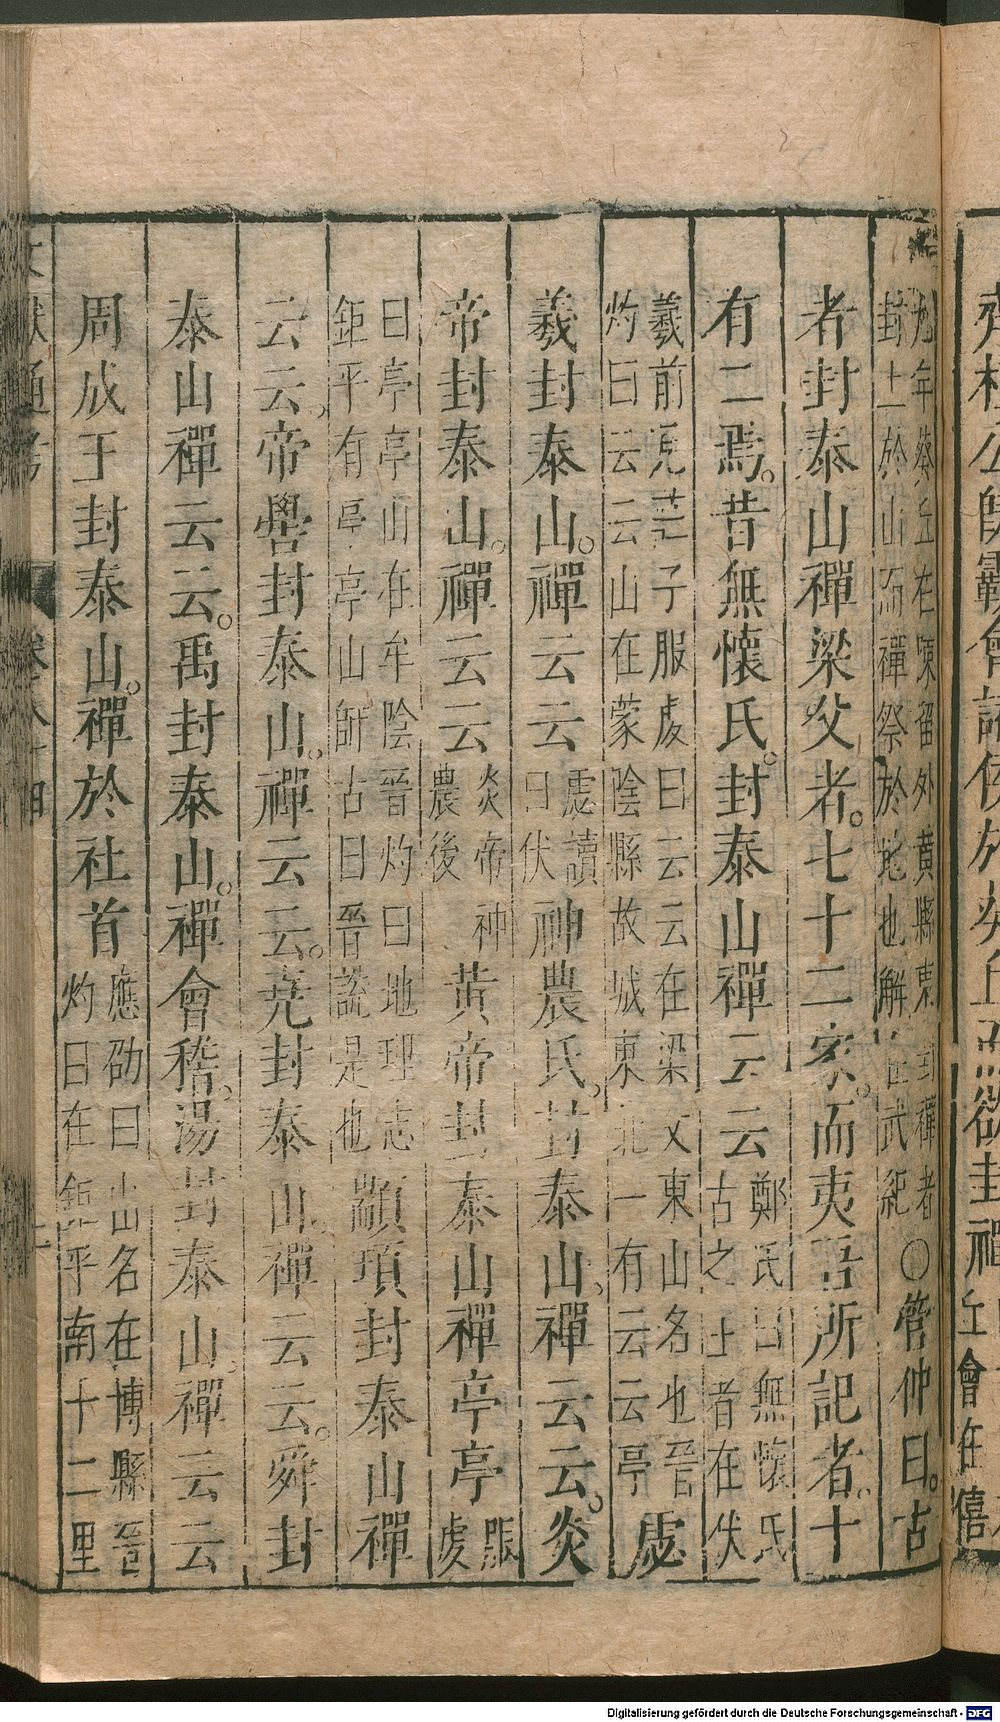 齊桓公既霸會諸侯於葵丘而欲封禪丘會在僖
九年葵丘在陳留外黃縣東封禪者
封土於山而禪祭於地也解在武紀
○管仲曰。古
者封泰山禪梁父者。七十二家。而夷吾所記者。十
有二焉。昔無懷氏。封泰山禪云云
鄭氏曰無懷氏
古之王者在伏
羲前見莊子服虔曰云云在梁父東山名也晉
灼曰云云山在蒙陰縣故城東北一有云云亭
虙
羲封泰山。禪云云
虙讀
曰伏
神農氏。封泰山。禪云云。炎
帝封泰山。禪云云
炎帝神
農後
黃帝封泰山禪亭亭
服
虔
曰亭亭山在牟陰晉灼曰地理志
鉅平有亭亭山師古曰晉說是也
顓頊封泰山禪
云云。帝嚳封泰山。禪云云。堯封泰山。禪云云。舜封
泰山禪云云。禹封泰山。禪會稽。湯封泰山。禪云云
周成王封泰山。禪於社首
應劭曰山名在博縣晉
灼曰在鉅平南十二里
文獻通考 卷八十四
Digitalisierung gefördert durch die Deutsche Forschungsgemeinschaft - DFG